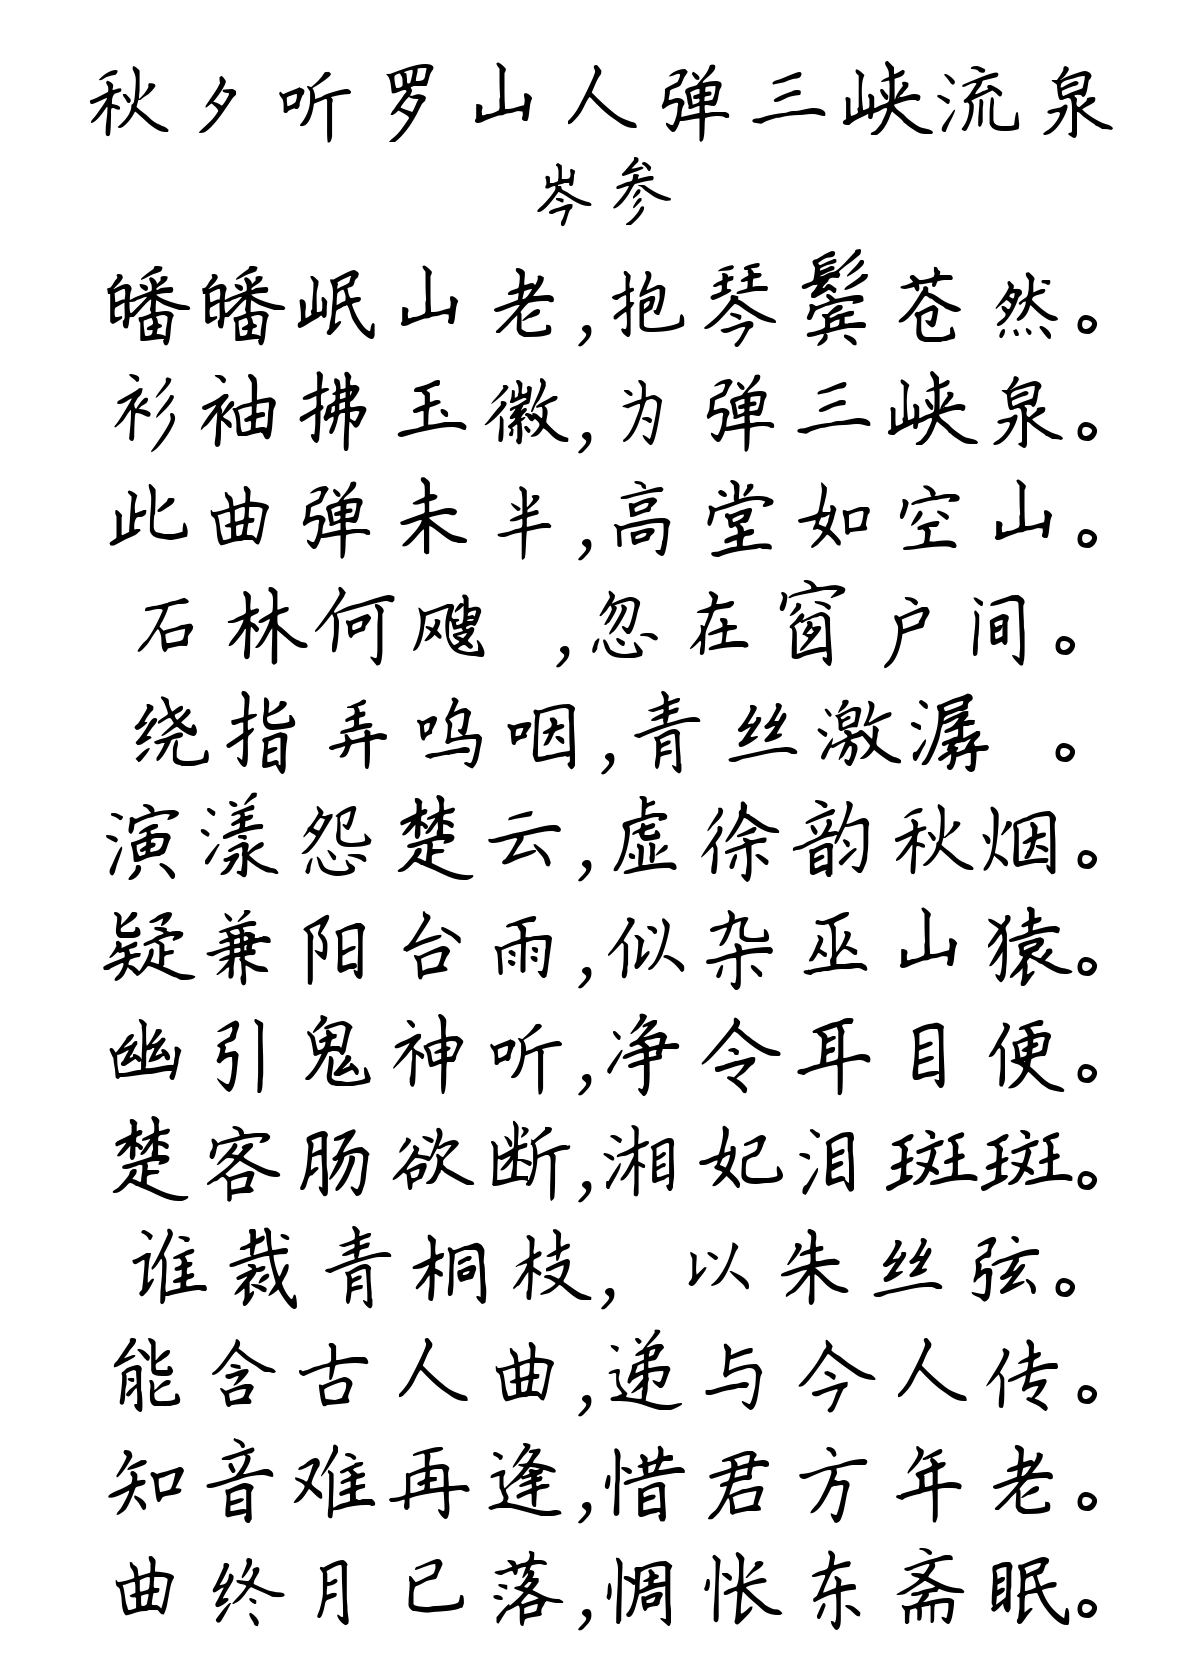 秋夕听罗山人弹三峡流泉
岑参
皤皤岷山老,抱琴鬓苍然。
衫袖拂玉徽,为弹三峡泉。
此曲弹未半,高堂如空山。
石林何飕 ,忽在窗户间。
绕指弄呜咽,青丝激潺 。
演漾怨楚云,虚徐韵秋烟。
疑兼阳台雨,似杂巫山猿。
幽引鬼神听,净令耳目便。
楚客肠欲断,湘妃泪斑斑。
谁裁青桐枝, 以朱丝弦。
能含古人曲,递与今人传。
知音难再逢,惜君方年老。
曲终月已落,惆怅东斋眠。